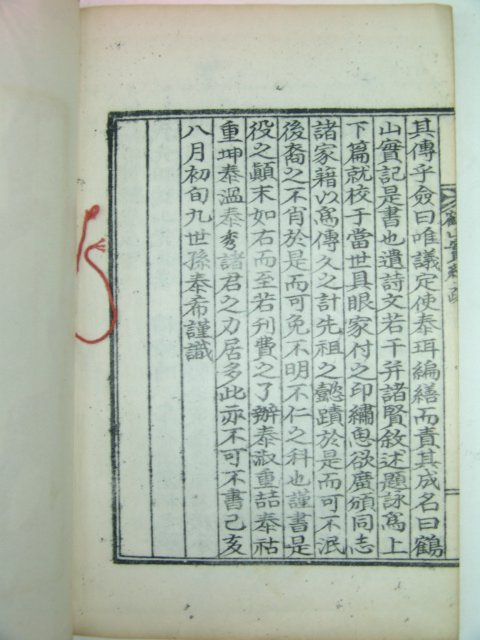 其傳乎僉曰唯議定使泰珥編繕而責其成名曰鶴
山實記是書也遺詩文若干并諸賢敘述題詠爲上
下篇就校于當世具眼家付之印繡鬼欲廣頒同志
諸家藉以爲傳久之計先祖之懿蹟於是而可不泯
後裔之不肖於是而可免不明不仁之科也謹書是
役之顚末如右而至若刋費之了辦泰淑重喆奉祜
重坤泰溫泰秀諸君之力居多此亦不可不書己亥
八月初旬九世孫泰希謹識
山實紀